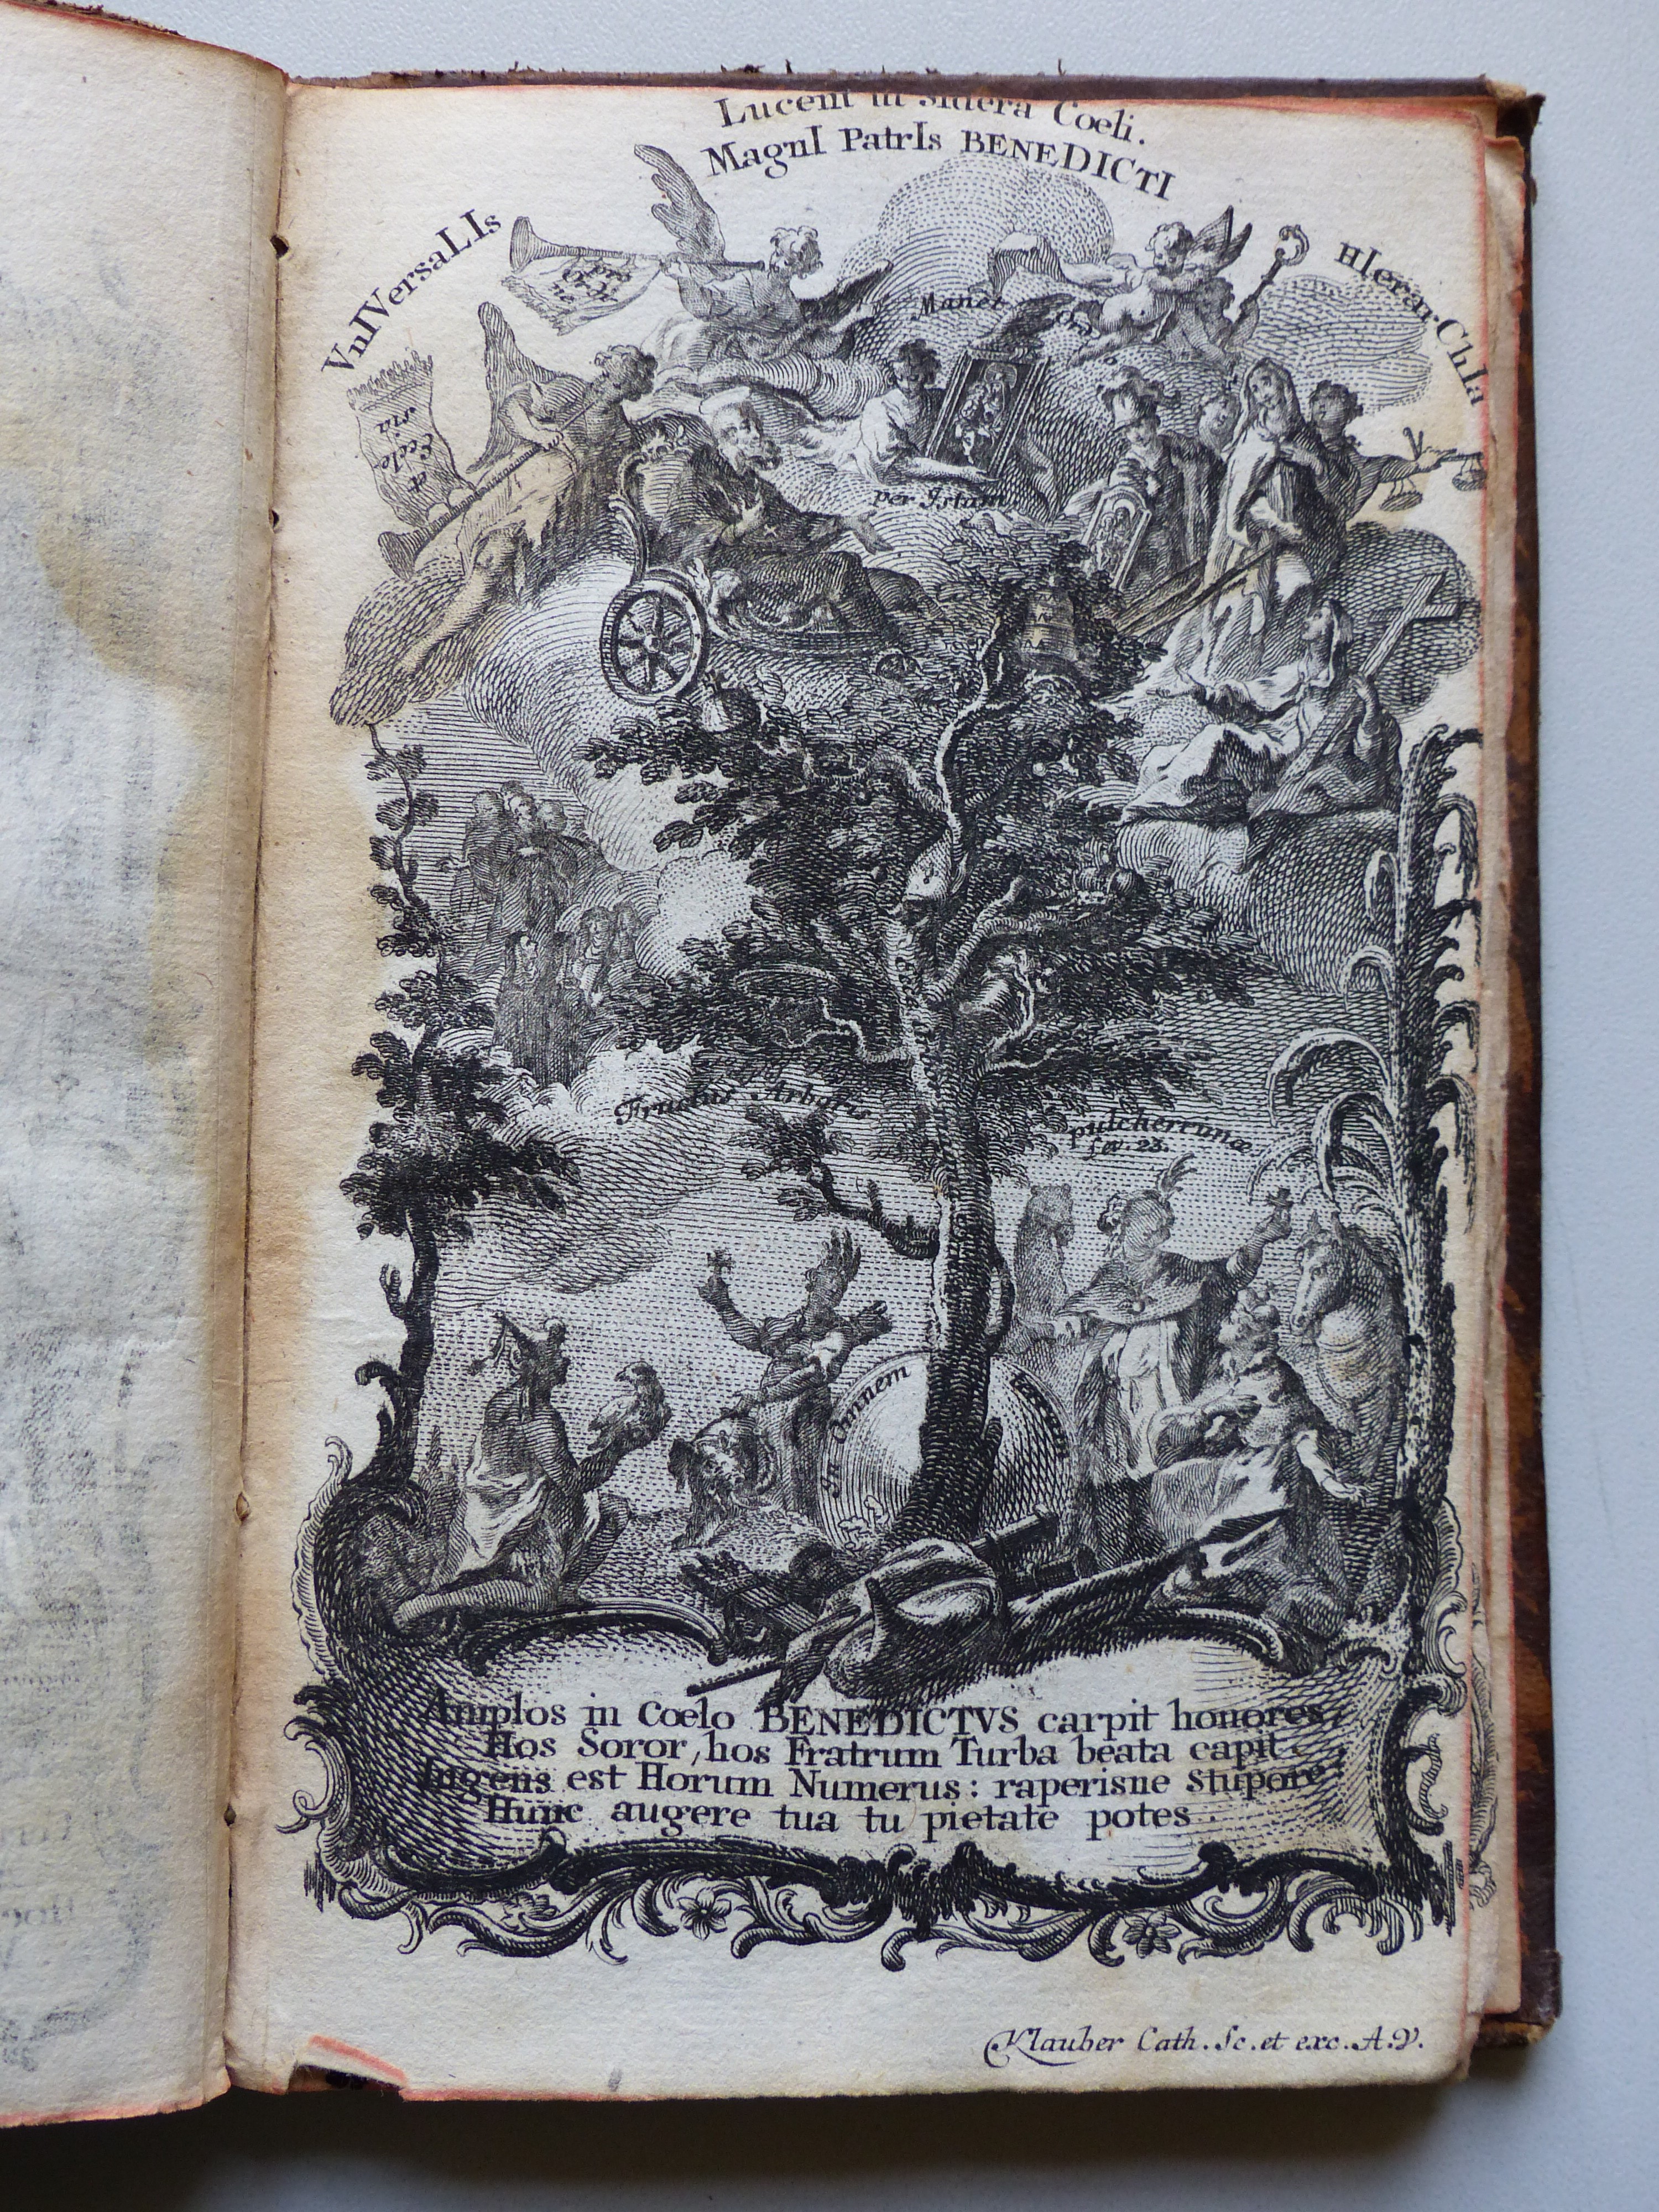 Lucent ut Sidera Coeli.
MagnI PatrIs BENEDICTI
VnIVersaLIs
HIerar-ChIa
Manet
per Istum
et
Eccle-
sia
Fructus Arboris
pulcherrimæ
Lev. 23.
In Omnem
Amplos in Coelo BENEDICTVS carpit honores,
Hos Soror, hos Fratrum Turba beata capit.
Ingens est Horum Numerus: raperisne Stupore?
Hunc augere tua tu pietate potes.
Klauber Cath. Sc. et exc. A.V.